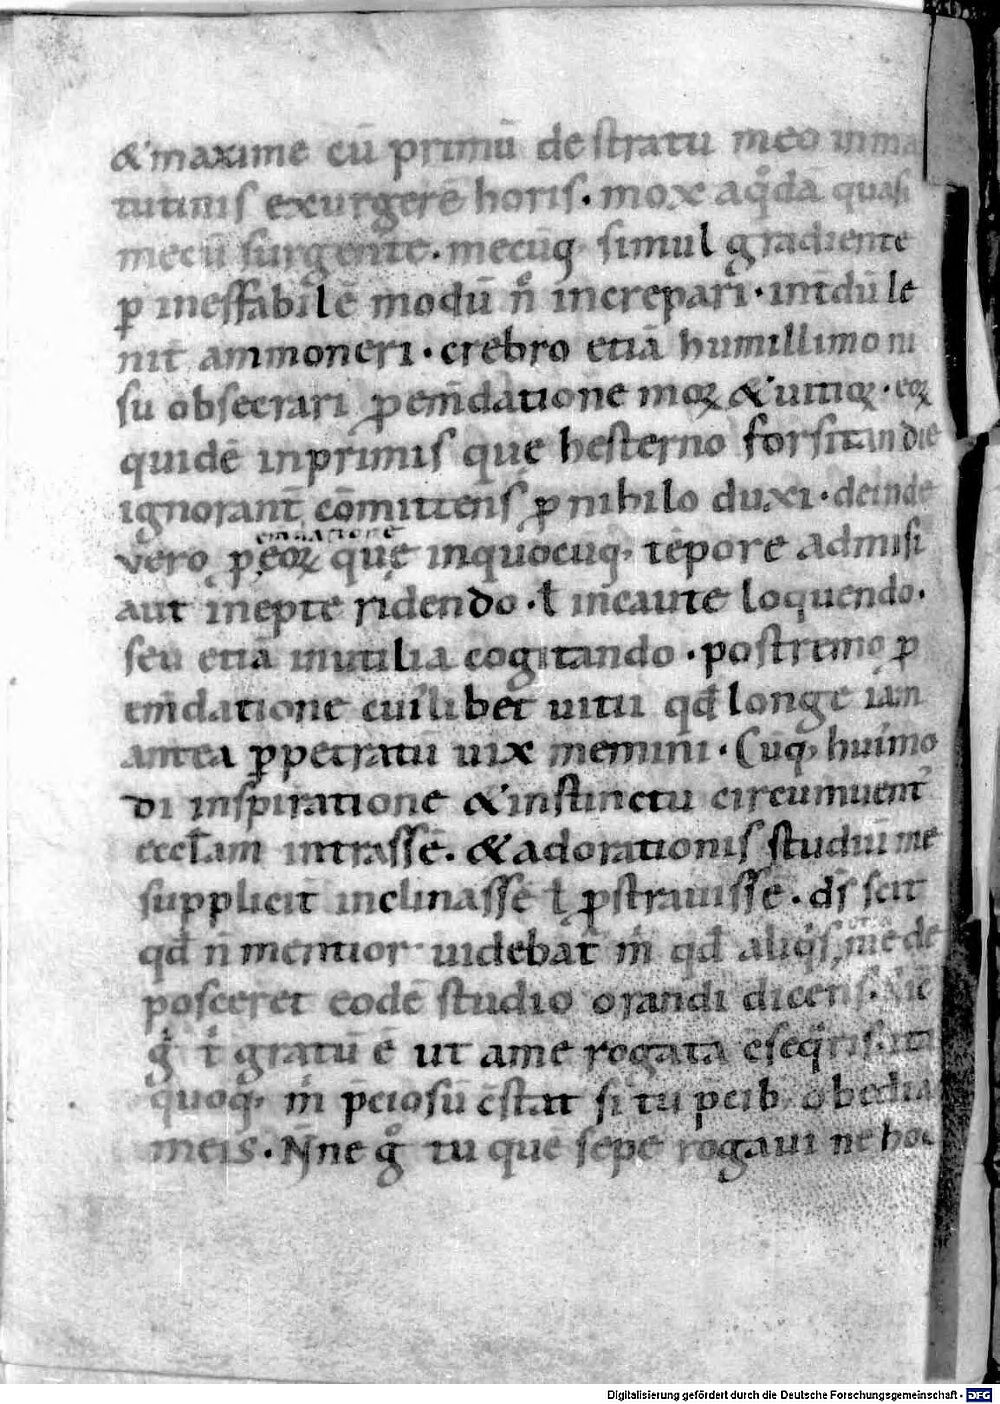 & maxime cū primū de stratu meo inma
tutinis exurgerē horis. mox aq̊dā quasi
mecū surgente. mecūq; simul gradiente
ꝑ ineffabilē modū n̊ increpari. int̄dū le
nit̄ ammoneri. crebro etiā humillimo ni
su obsecrari ꝓ em̄datione moꝝ & uitioꝝ. eoꝝ
quidē inprimis quę hesterno forsitan die
ignorant̄ cōmittens ꝓ nihilo duxi. deinde
emdatione
vero ꝓ eoꝝ quę inquocuq; tēpore admisi
aut inepte ridendo. ł incaute loquendo.
seu etiā inutilia cogitando. postremo ꝓ
em̄datione cuilibet uitii qđ longe iam
antea ꝑpetratū uix memini. Cūq; huimo
di inspiratione & instinctu circumuent᷒
eccłam intrassē. & adorationis studiū me
supplicit̄ inclinassē ł ꝓstrauissē. d̄s scit
qđ n̄ mentior uidebat̄ m̄ qđ aliq̇s me de
posceret eodē studio orandi dicens. Sic
g̊ t̄ gratū ē ut ame rogata c̄seq̇ris. ita
quoq; m̄ p̄ciosū c̄stat si tu p̄cib; obedia
meis. N̄ne g̊ tu quē sepe rogaui ne hoc
Digitalisierung gefördert durch die Deutsche Forschungsgemeinschaft - DFG